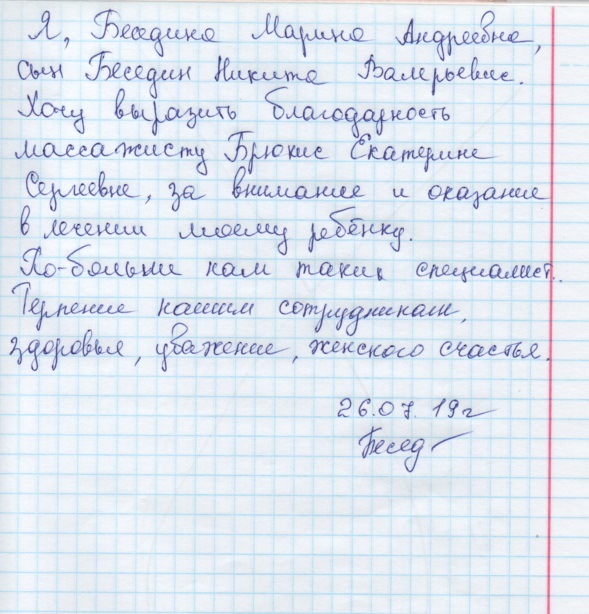 Я, Беседина Марина Андреевна,
сын Беседин Никита Валерьевич.
Хочу выразить благодарность
массажисту Брюкис Екатерине
Сергеевне, за внимание и оказание
в лечении моему ребёнку.
По-больше нам таких специалист.
Терпение нашим сотрудникам,
здоровья, уважение, женского счастья.
26.07.19г
Бесед